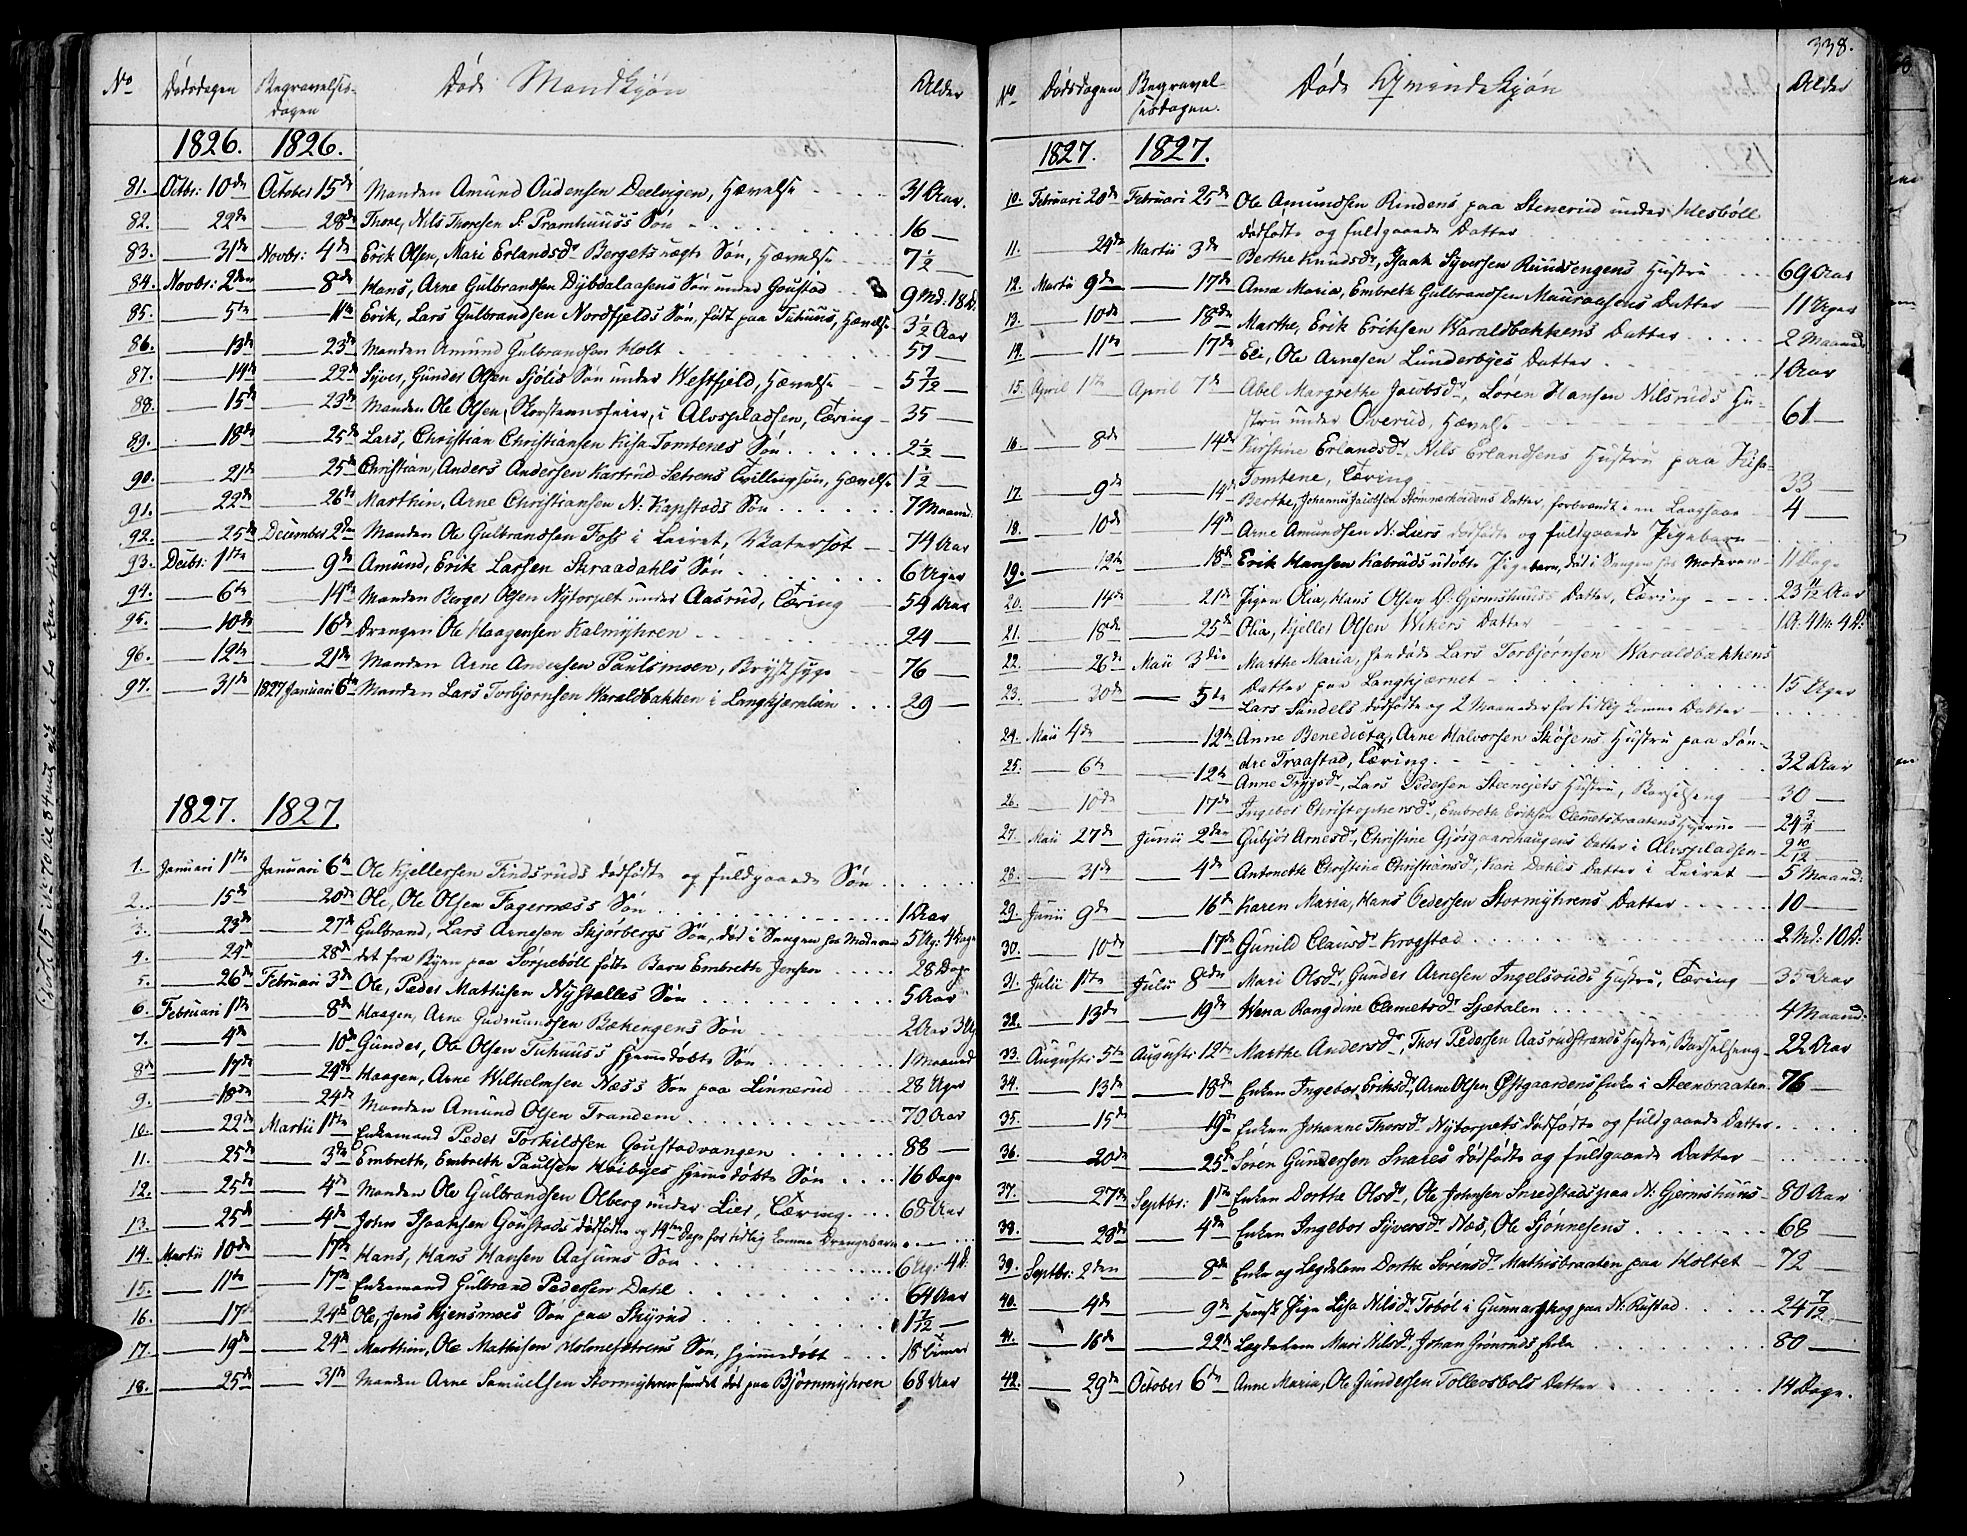 No Dødsdagen Begravelses-dagen Døde Mandkjøn Alder
1826. 1826.
81. Octbr: 10de October 15de Manden Amund Audensen Deelvigen, Hævelse 31 Aar.
82. 22de 28de Thore, Nils Thoresen S: Pramhuuss Søn 16
83. 31de Novbr: 4de Erik Olsen, Mari Erlandsdr Bergets uægte Søn, Hævelse 7 1/2
84. Novbr: 2den 8de Hans, Arne Gulbrandsen Dybdalaasens Søn under Goustad 9 Md: 18 D.
85. 5te 11te Erik, Lars Gulbrandsen Nordfjelds Søn, født paa Tuhuus, Hævelse 3 1/2 Aar
86. 13de 23de Manden Amund Gulbrandsen Holt 57
87. 14de 22de Syver, Gunder Olsen Sjølis Søn under Westfjeld, Hævelse 5 7/12
88. 15de 23de Manden Ole Olsen Skorstensfeier, i Alvspladsen, Tæring 35
89. 18de 25de Lars, Christian Christiansen Kisa-Tomtenes Søn 2 1/2
90. 21de 25de Christian, Anders Andersen Kartrud Sætrens Tvillingsøn, Hævelse 1 1/2
91. 22de 26de Marthin, Arne Christiansen N: Kapstads Søn 7 Maand:
92. 25de December 2den Manden Ole Gulbrandsen Foss i Leiret, Vatersot 74 Aar
93. Decbr: 1ste 9de Amund, Erik Larsen Skraadahls Søn 6 Uger
94. 6te 14de Manden Berger Olsen Nytorpet under Aasrud, Tæring 54 Aar
95. 10de 16de Drengen Ole Haagensen Kalmyhren 24
96. 12te 21de Manden Arne Andersen Paulsmoen, Brystsyge 76
97. 31de 1827 Januari 6te Manden Lars Torbjørnsen Waraldbakken i Langkjærnlien 29
1827. 1827
1. Januari 1ste Januari 6te Ole Kjellersen Findsruds dødfødte og fuldgaaede Søn
2. 15de 20de Ole, Ole Olsen Fagernæss Søn 1 Aar
3. 23de 27de Gulbrand, Lars Arnesen Skjørbergs Søn, død i Sengen hos Moderen 5 Ug: 4 Dage
4. 24de 28de det fra Byen paa Sørpebøll satte Barn Embreth Jensen 28 Dage
5. 26de Februari 3de Ole, Peder Mathisen Nystølles Søn 5 Aar
6. Februari 1ste 8de Haagen, Arne Gudmundsen Bækengens Søn 2 Aar 3 Ug
7. 4de 10de Gunder, Ole Olsen Tuhuuss hjemmedøbte Søn 1 Maaned
8de 17de 24de Haagen, Arne Wilhelmsen Næss Søn paa Linnerud 28 Uger
9. 18de 24de Manden Amund Olsen Trandem 70 Aar
10. 22de Martii 1ste Enkemand Peder Torkildsen Goustadvangen 88
11. 25de 3de Embreth, Embreth Paulsen Høibyes hjemmedøbte Søn 16 Dage
12. 25de 4de Manden Ole Gulbrandsen Olberg under Lier, Tæring 68 Aar
13. 25de 4de John Isaaksen Goustads dødfødte og 14ten Dage for tidlig komne Drengebarn
14. Martii 10de 17de Hans, Hans Hansen Aasums Søn 6 Ug: 4 D:
15. 11te 17de Enkemand Gulbrand Pedersen Dahl 64 Aar
16. 17de 24de Ole, Jens Kjensmoes Søn paa Skyrud 1 7/12
17. 19de 24de Marthin, Ole Mathisen Holmesætrens Søn, hjemmedøbt 18 Timer
18. 25de 31te Manden Arne Samuelsen Stormyhren fundet død paa Bjørnmyhren 68 Aar
338.
No Dødsdagen Begravel-sesdagen. Døde Qvindekjøn Alder
1827. 1827.
10. Februari 20de Februari 25de Ole Amundsen Rindens paa Stenerud under Hesbøll
dødfødte og fuldgaaede Datter
11. 24de Martii 3de Berthe Knudsdr, Isaak Syversen Ruudsengens Hustru 69 Aar
12. Martii 9de 17de Anne Maria, Embreth Gulbrandsen Mauraasens Datter 11 Uger
13. 10de 18de Marthe, Erik Eriksen Waraldbakkens Datter 2 Maaned
14. 11te 17de Eli, Ole Arnesen Lunderbyes Datter 1 Aar
15. April 1ste April 7de Abel Margrethe Jacobsdr, Søren Hansen Nilsruds Hu-
stru under Overud, Hævelse 61
16. 8de 14de Kirstine Erlandsdr, Nils Erlandsens Hustru paa Kisa-
Tomtene, Tæring 33
17. 9de 14de Berthe, Johannes Jacobsen Datter, forbrændt i en 4
18. 10de 14de Arne Amundsen N: Liers dødfødte og fuldgaaede Pigebarn
19. 12te 18de Erik Hansen Kabruds udøbte Pigebarn, død i Sengen hos Moderen 11 Dage
20. 14de 21de Pigen Olia, Hans Olsen Ø: Gjermshuuss Datter, Tæring 23 11/12 Aar
21. 18de 25de Olia, Kjeller Olsen Wikers Datter 1 A: 4 M: 4 D:
22. 26de Maii 3die Marthe Maria, hendøde Lars Torbjørnsen Waraldbakkens
Datter paa Langkjærnet 15 Uger
23. 30de 5te Lars Sundets dødfødte og 2 Maaneder for tidlig komne Datter
24. Maii 4de 12te Anne Benedicta, Arne Halvorsen Skøsens Hustru paa Søn-
dre Traastad, Tæring 32 Aar
25. 6te 12te Anne Trygsdr, Lars Pedersen Steenejets Hustru, Barselseng 30
26. 10de 17de Ingebor Christophersdr, Embreth Eriksen Clemetsbraatens Hustru 29 3/4
27. Maii 27de Junii 2den Gubjør Arnesdr, Christine Gjøsgaardhaugens Datter i Alvspladsen 2 10/12
28. 31te 4de Antonethe Christine Christiansdr, Kari Dahls Datter i Leiret 5 Maand:
29. Junii 9de 16de Karen Maria, Hans Pedersen Stormyhrens Datter 10
30. 10de 17de Gunild Clausdr Krogstad 2 Md: 10 D:
31. Julii 1ste Julii 8de Mari Olsdr, Gunder Arnesen Ingelsruds Hustru, Tæring 35 Aar
32. 13de 19de Wena Rangdine Clemetsdr Sætalen 4 Maaned:
33. Augusti 5te Augusti 12te Marthe Andersdr, Thor Pedersen Aasrudstrands Hustru, Barselseng 22 Aar
34. 13de 18de Enken Ingebor Eriksdr, Arne Olsen Østgaardens Enke i Steenbraaten 76
35. 15de 19de Enken Johanne Thorsdr Nytorpets dødfødte og fuldgaaede Datter
36. 20de 25de Søren Gundersen Snares dødfødte og fuldgaaede Datter
37. 27de Septbr: 1ste Enken Dorthe Olsdr, Ole Johnsen Snredstads paa N: Gjermshuus 80 Aar
38. 28de 4de Enken Ingebor Syversdr Næs, Ole Sjønnesens 68
39. Septbr: 2den 8de Enke og Lægdelem Dorthe Sørensdr Mathisbraaten paa Holtet 72
40. 4de 9de svensk Pige Lisa Nilsdr Tobøl i Gunnarskog paa N: Rustad 24 7/12
41. 16de 22de Lægdelem Mari Nilsdr, Johan Grønruds Enke 80
42. 29de October 6te Anne Maria, Ole Gundersen Tolleosbøls Datter 14 Dage.